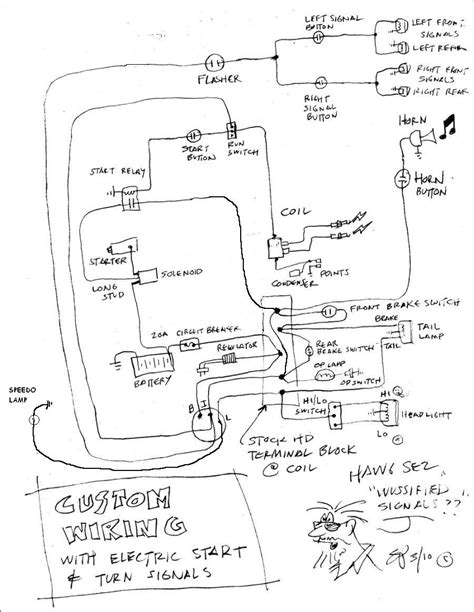 LEFT SIGNAL
BUTTON
LEFT FRONT
SIGNALS
LEFT REAR
FLASHER
RIGHT FRONT
SIGNALS
RIGHT REAR
RIGHT
SIGNAL
BUTTON
HORN
START
BUTTON
RUN
SWITCH
START RELAY
HORN
BUTTON
COIL
STARTER
SOLENOID
LONG
STUD
POINTS
CONDENSER
FRONT BRAKE SWITCH
BRAKE
TAIL
LAMP
TAIL
20A CIRCUIT BREAKER
REGULATOR
REAR
BRAKE SWITCH
OP LAMP
OP SWITCH
BATTERY
SPEEDO
LAMP
B I L
HI/LO
SWITCH
HI
HEADLIGHT
LO
STOCK HD
TERMINAL BLOCK
@ COIL
CUSTOM
WIRING
WITH ELECTRIC START
& TURN SIGNALS
HAWG SEZ
"WUSSIFIED
SIGNALS??
3/10 ©